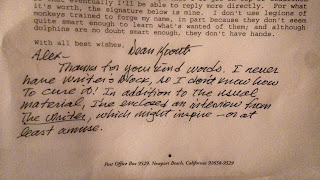 eventually I'll be able to reply more directly. For what
it's worth, the signature below is mine. I don't use legions of
monkeys trained to forge my name, in part because they don't seem
quite smart enough to learn what's wanted of them; and although
dolphins are no doubt smart enough, they don't have hands.
With all best wishes,
Dean Koontz
Alex—
Thanks for your kind words. I never
have writer's block, so I don't know how
to cure it! In addition to the usual
material, I've enclosed an interview from
The Writer, which might inspire—or at
least amuse.
Post Office Box 9529, Newport Beach, California 92658-9529